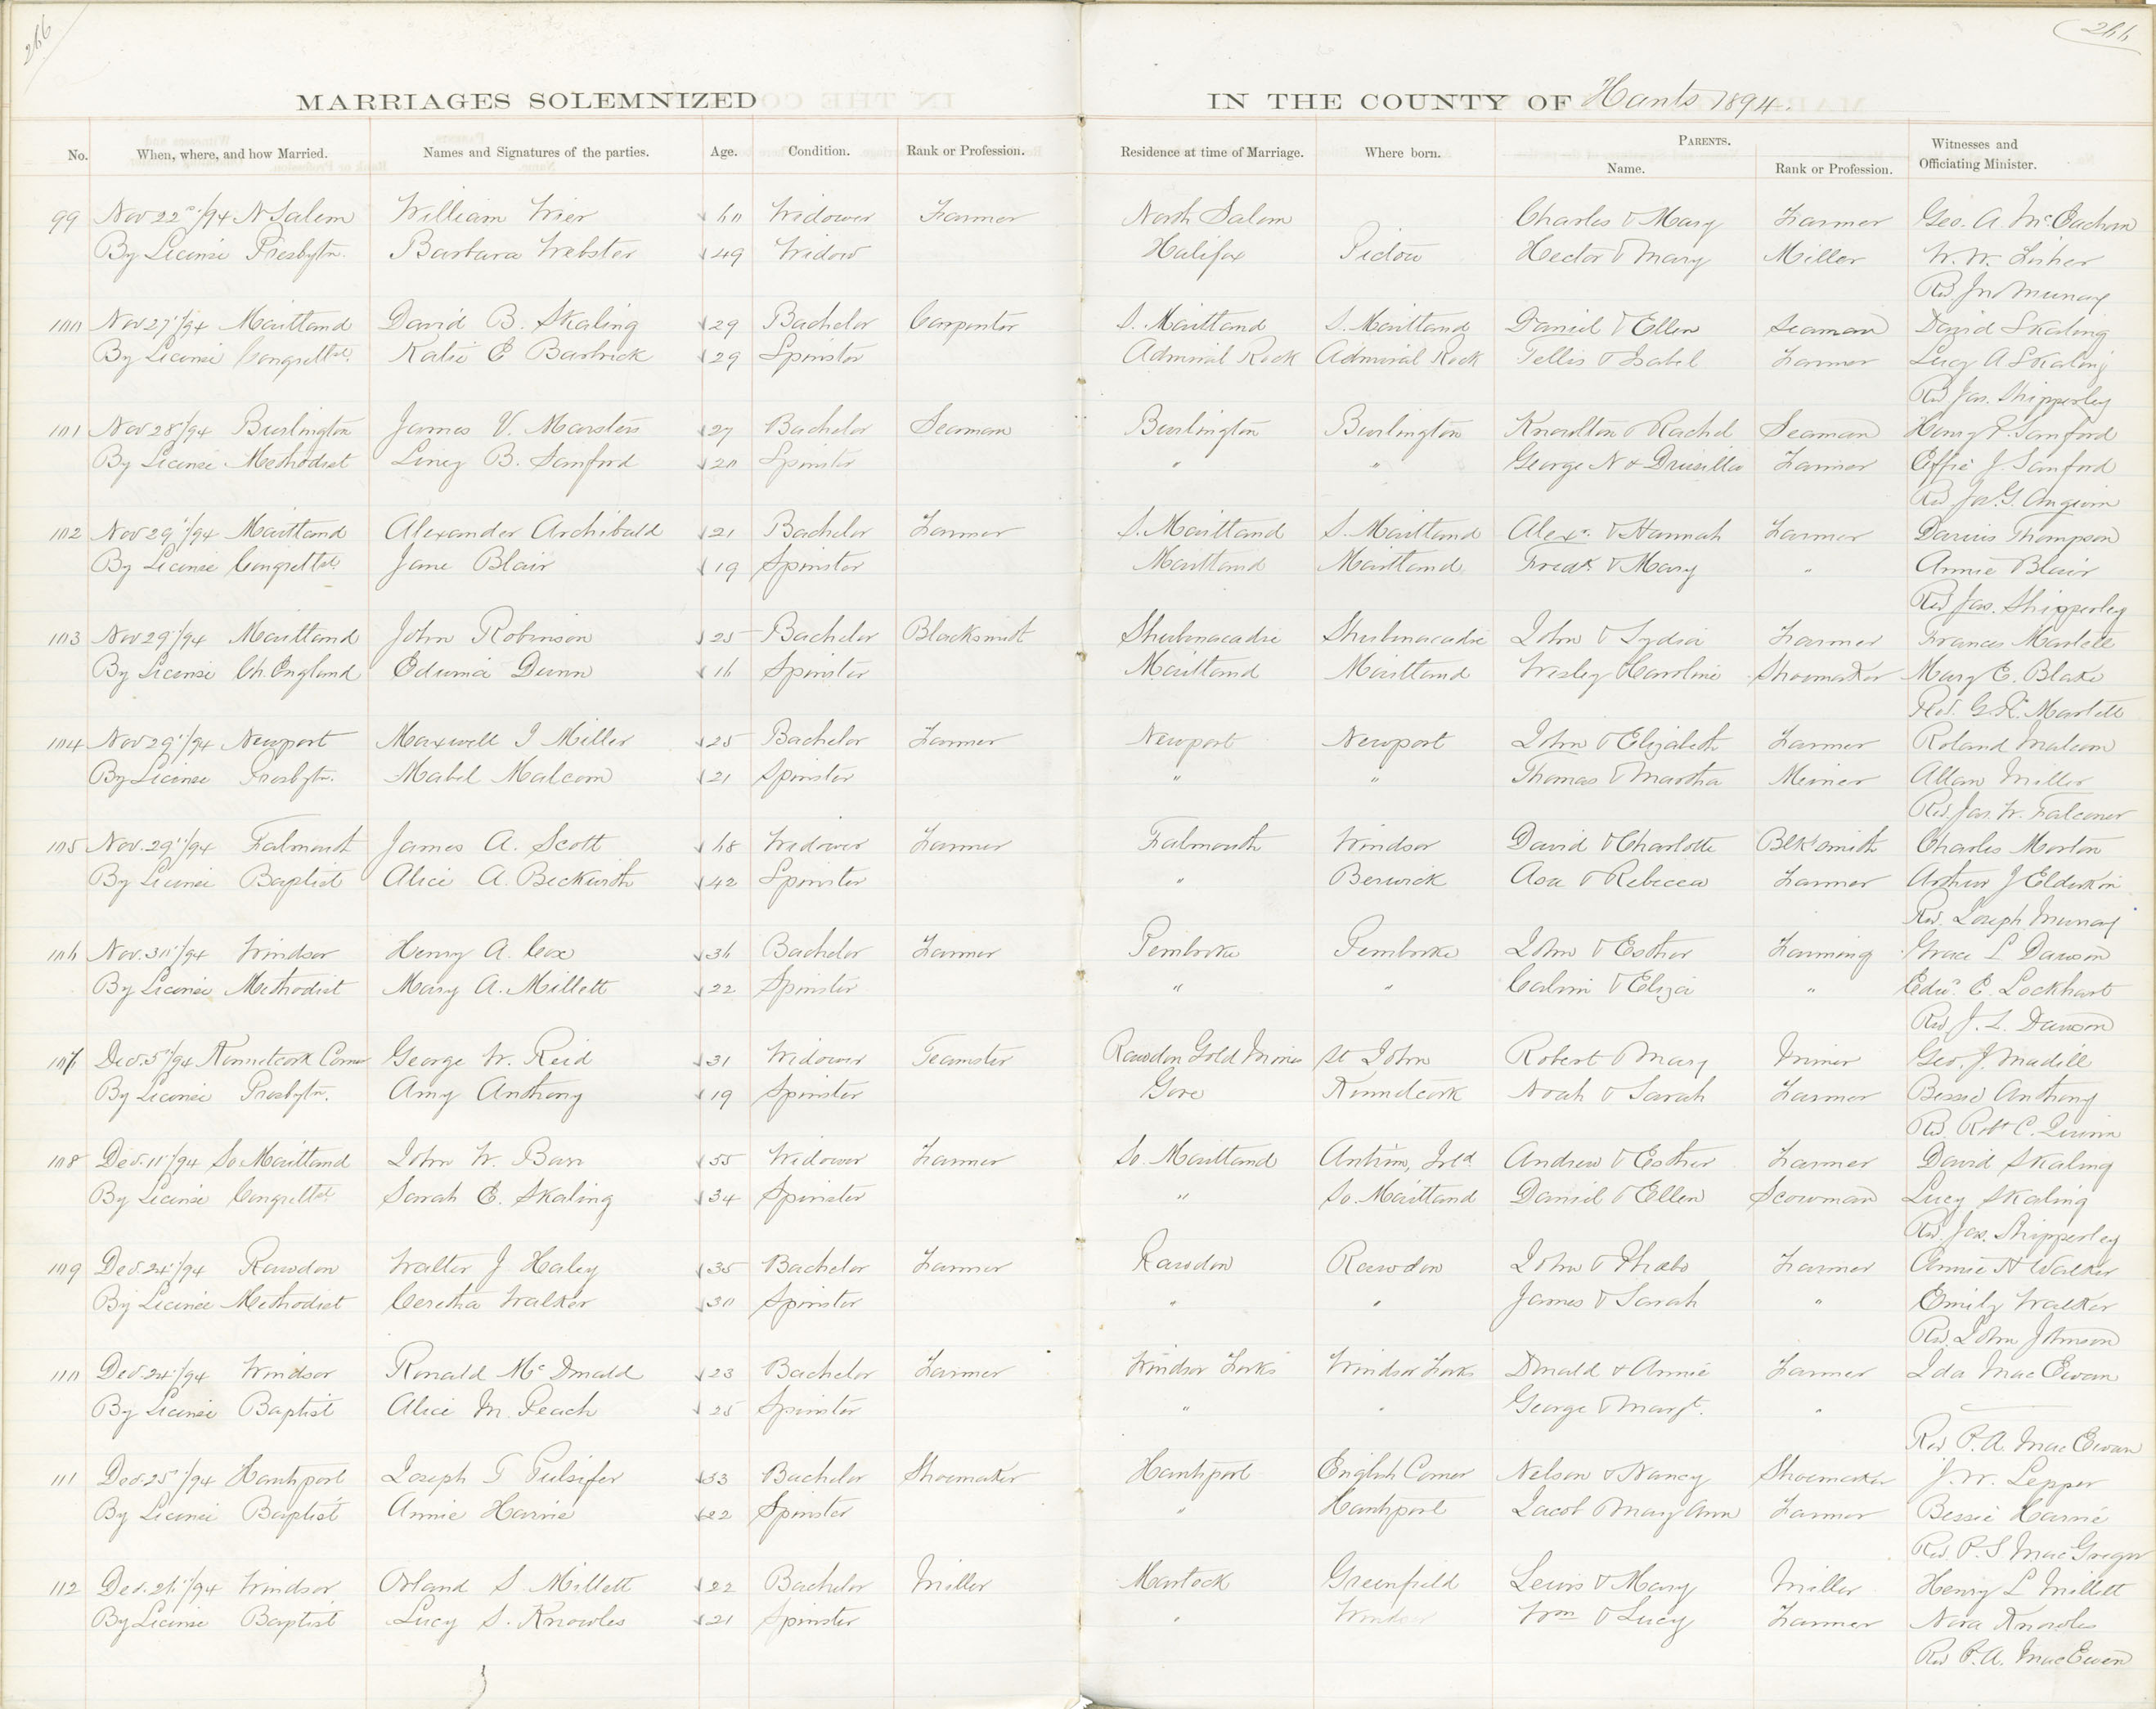 266
266
MARRIAGES SOLEMNIZED IN THE COUNTY OF Hants 1894.
No. When, where, and how Married. Names and Signatures of the parties. Age. Condition. Rank or Profession. Residence at time of Marriage. Where born. PARENTS. Name. Rank or Profession. Witnesses and Officiating Minister.
99 Nov 22d/94 N Salem William Wier 60 Widower Farmer North Salem Charles & Mary Farmer Geo. A. McEachern
By License Presbytn. Barbara Webster 49 Widow Halifax Pictou Hector & Mary Miller W. W. Fisher
Rev Jno Murray
100 Nov 27"/94 Maitland David B. Skaling 29 Bachelor Carpenter S. Maitland S. Maitland Daniel & Ellen Seaman David Skaling
By License Congrettal. Katie E 29 Spinster Admiral Rock Admiral Rock & Isabel Farmer Lucy A Skaling
Rev Jas. Shipperley
101 Nov 28"/94 Burlington James V. Marsters 27 Bachelor Seaman Burlington Burlington Knowlton & Rachel Seaman Henry P. Sanford
By License Methodist B. Sanford 20 Spinster " " George N & Drusilla Farmer Effie J. Sanford
Rev Jos. G. Angwin
102 Nov 29"/94 Maitland Alexander Archibald 21 Bachelor Farmer S. Maitland S. Maitland Alexr. & Hannah Farmer Darius Thompson
By License Congrettal. Jane Blair 19 Spinster Maitland Maitland Fredk. & Mary " Annie Blair
Rev Jas. Shipperley
103 Nov 29"/94 Maitland John Robinson 25 Bachelor Blacksmith Shubenacadie Shubenacadie John & Lydia Farmer Frances Martell
By License Ch. England Dunn 16 Spinster Maitland Maitland Wesley & Caroline Shoemaker Mary E. Blake
Rev. G. R. Martell
104 Nov 29"/94 Newport Maxwell I Miller 25 Bachelor Farmer Newport Newport John & Elizabeth Farmer Roland Malcom
By License Presbytn. Mabel Malcom 21 Spinster " " Thomas & Martha Meiner Allan Miller
Rev. Jas. W. Falconer
105 Nov. 29"/94 Falmouth James A. Scott 68 Widower Farmer Falmouth Windsor David & Charlotte Blk'smith Charles Morton
By License Baptist Alice A. Beckwith 42 Spinster " Berwick Asa & Rebecca Farmer Arthur J Elderkin
Rev. Joseph Murray
106 Nov. 30"/94 Windsor Henry A. Cox 36 Bachelor Farmer Pembroke Pembroke John & Esther Farming Grace L Dawson
By License Methodist Mary A. Millett 22 Spinster " " Calvin & Eliza " Edwd. E. Lockhart
Rev J. L. Dawson
107 Dec. 5"/94 Kennetcook Corner George W. Reid 31 Widower Teamster Rawdon Gold Mines St John Robert & Mary Miner Geo. J. Madill
By License Presbytn. Amy Anthony 19 Spinster Gore Kennetcook Noah & Sarah Farmer Bessie Anthony
Rev. Robt C. Quinn
108 Dec. 11"/94 So Maitland John W. Barr 55 Widower Farmer So. Maitland Antrim, Ireld Andrew & Esther Farmer David Skaling
By License Congrettal Sarah E. Skaling 34 Spinster " So. Maitland Daniel & Ellen Scowman Lucy Skaling
Rev. Jas. Shipperley
109 Dec. 24"/94 Rawdon Walter J Haley 35 Bachelor Farmer Rawdon Rawdon John & Phebe Farmer Annie H Walker
By License Methodist Ceretha Walker 30 Spinster " " James & Sarah " Emily Walker
Rev. John Johnson
110 Dec. 24"/94 Windsor Ronald McDonald 23 Bachelor Farmer Windsor Forks Windsor Forks Donald & Annie Farmer Ida MacEwan
By License Baptist Alice M. Peach 25 Spinster " " George & Margt. "
Rev P. A. MacEwan
111 Dec. 25"/94 Hantsport Joseph G Pulsifer 33 Bachelor Shoemaker Hantsport English Corner Nelson & Nancy Shoemaker J. W. Lepper
By License Baptist Annie Harvie 22 Spinster " Hantsport Jacob & Mary Ann Farmer Bessie Harvie
Rev. P. S MacGregor
112 Dec. 26"/94 Windsor Orland S. Millett 22 Bachelor Miller Martock Greenfield Lewis & Mary Miller Henry L Millett
By License Baptist Lucy S. Knowles 21 Spinster " Windsor Wm & Lucy Farmer Nora Knowles
Rev P. A. MacEwen